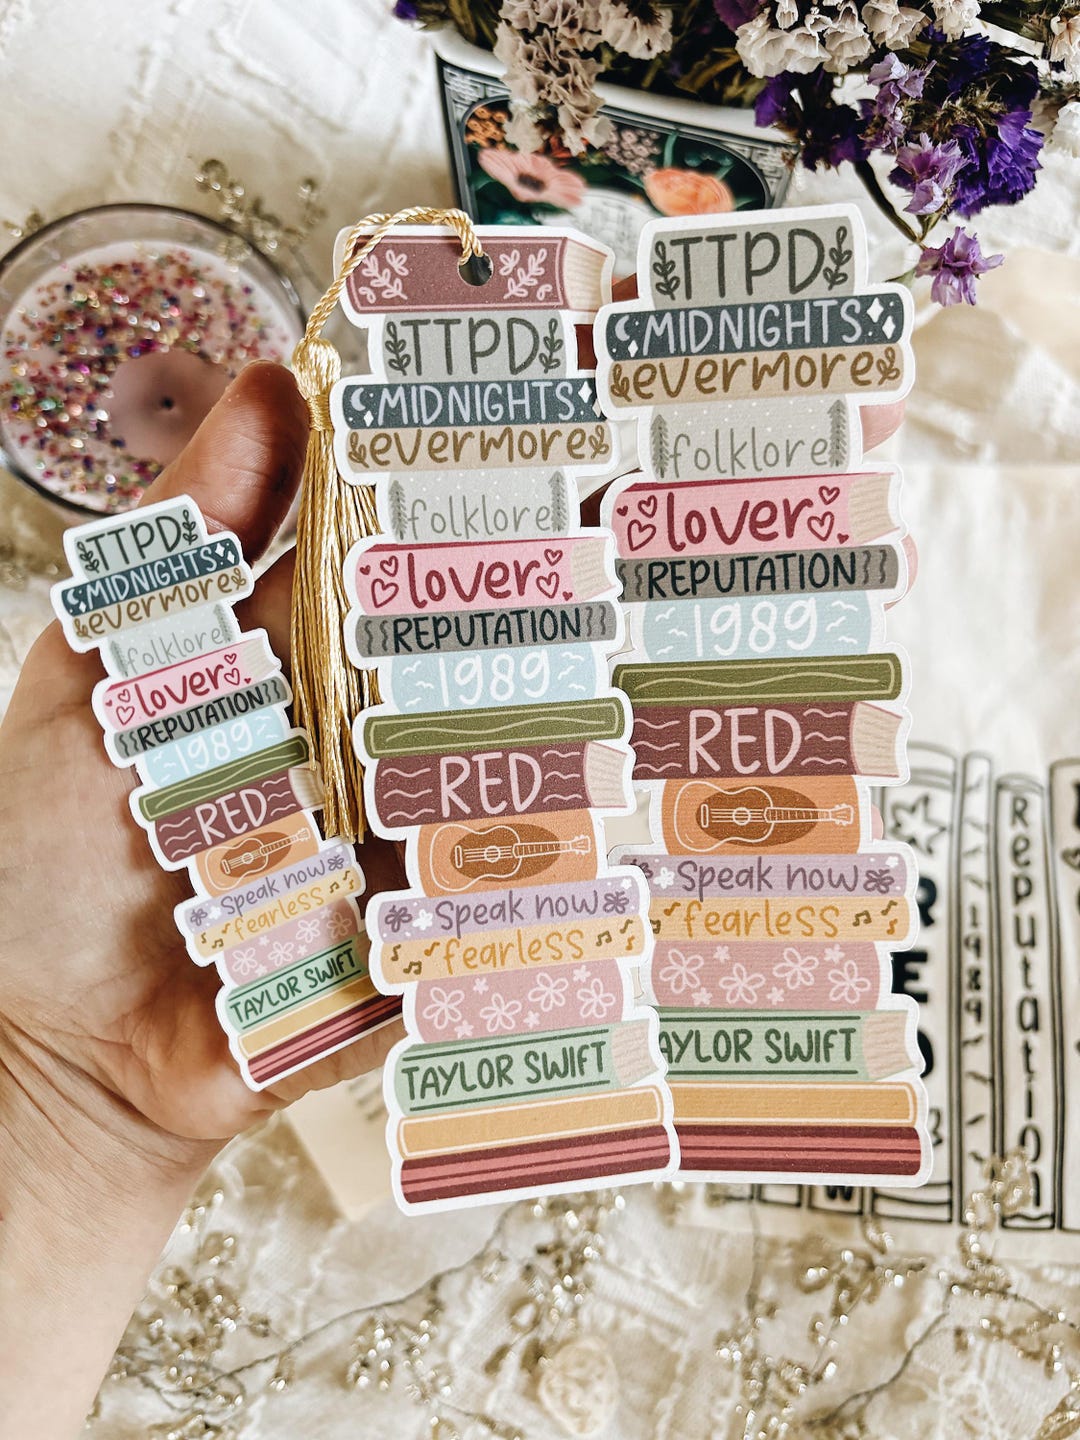 TTPD
MIDNIGHTS
evermore
folklore
lover
REPUTATION
1989
RED
Speak now
fearless
TAYLOR SWIFT
TTPD
MIDNIGHTS
evermore
folklore
lover
REPUTATION
1989
RED
Speak now
fearless
TAYLOR SWIFT
TTPD
MIDNIGHTS
evermore
folklore
lover
REPUTATION
1989
RED
Speak now
fearless
AYLOR SWIFT
RED
1989
Reputation